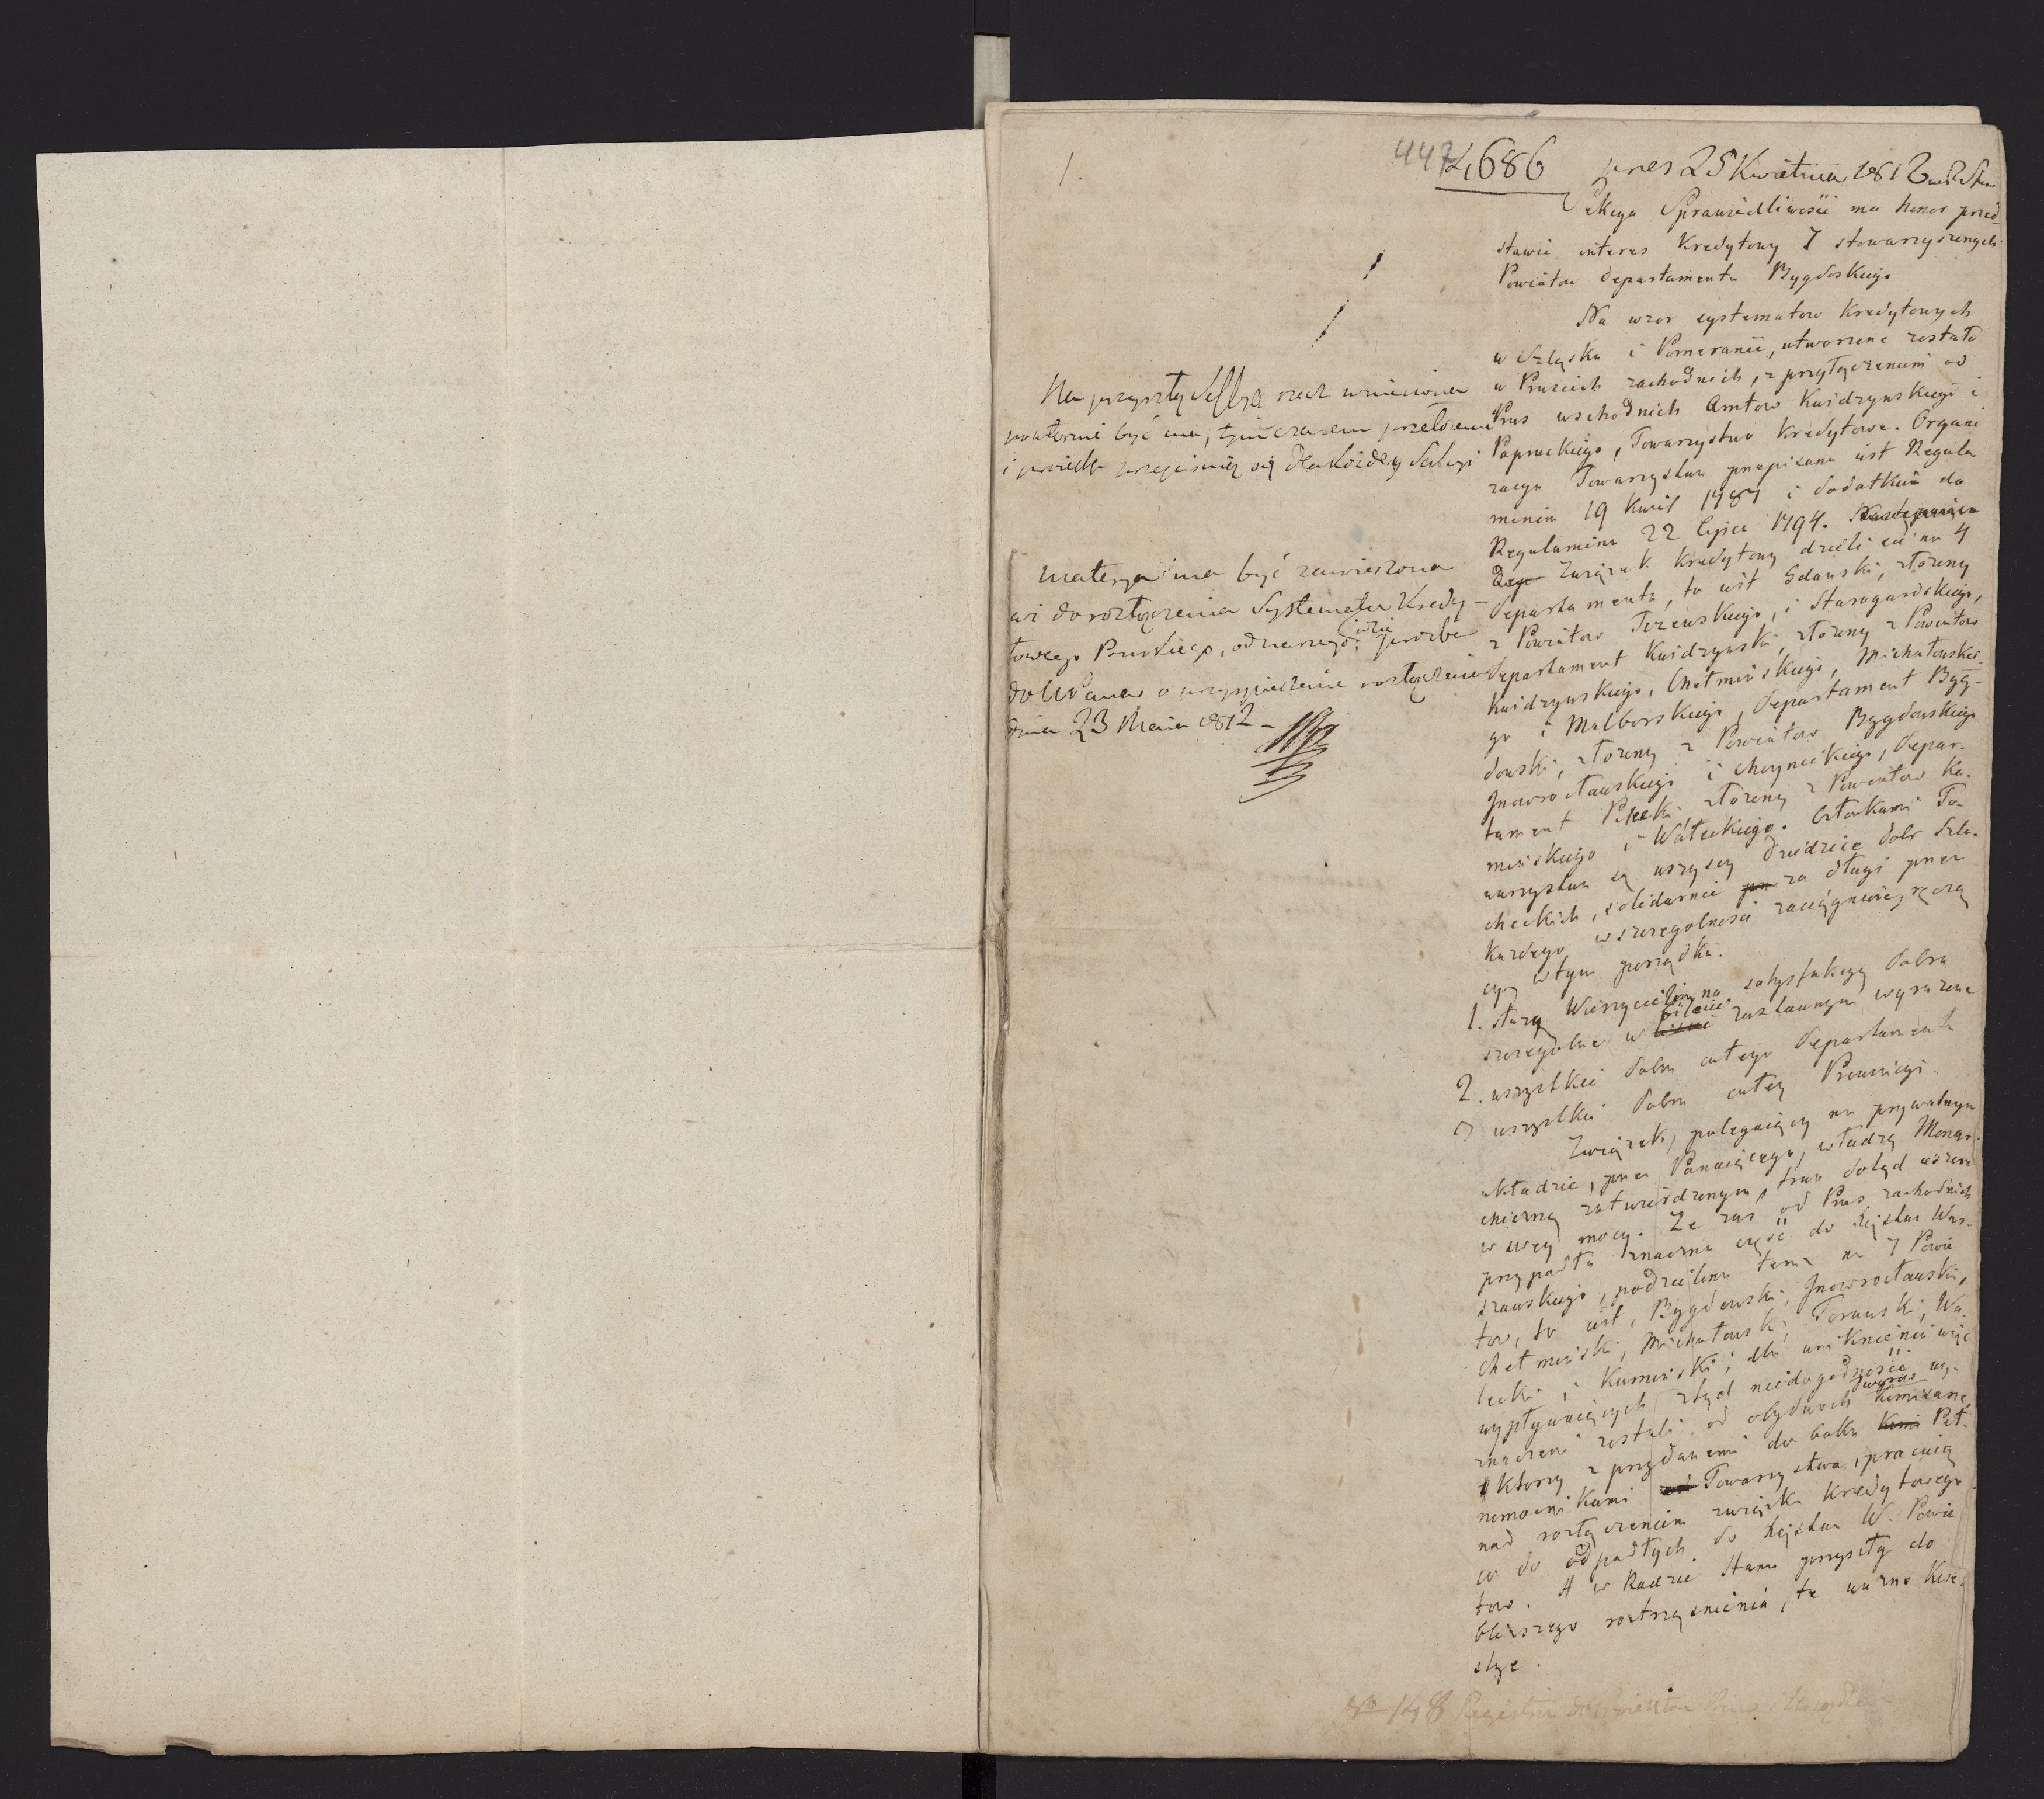 1.
447
4686 pres 25 Kwietnia 1812
Sekcya Sprawiedliwości ma honor przed-
stawić interes Kredytowy 7 stowarzyszonych
Powiatow Departamentu Bygdoskiego
Na wzor systematow Kredytowych
w Szląsku i Pomeranii, utworzone zostało
w Prusiech zachodnich, z przyłączeniem od
Prus wschodnich Amtow Kwidzynskiego i
Towarzystwo Kredytowe. Organi
zacya Towarzystwa przepisana iest Regula
minem 19 Kwiet 1787 i dodatkiem do
Regulaminu 22 lipca 1794.
Związek Kredytowy dzieli się na 4
Departamenta, to iest Gdanski, złożony
z Powiatow Tczewskiego, i Starogardskiego,
Departament Kwidzynski, złożony z Powiatow
Kwidzynskiego, Chełminskiego, Michałowskie-
go i Malborskiego, Departament Byg-
dowski, złożony z Powiatow Bygdowskiego
Jnowrocławskiego i Choynickiego, Depar-
tament Pilski złożony z Powiatow Ka-
minskiego i Wałeckiego. Członkami To-
warzystwa są wszyscy Dziedzice dobr Szla-
checkich, solidarnie za długi przez
każdego w szczegolności zaciągnione, ręczą
cy, w tym porządku.
1. służą Wierzycielom na satysfakcyą dobra
szczegolne w liscie zastawnym wyrażone
2. wszystkie dobra całego Departamentu
3 wszystkie dobra całey Prowincyi.
Związek, polegaiący na prywatnym
układzie, przez Panuiącego, władzą Monar-
chiczną zatwierdzonym, trwa dotąd ieszcze
w swey mocy. Ze zas od Prus zachodnich
przypadła znaczna część do Xięstwa War-
szawskiego, podzielona teraz na 7 Powia
tow, to iest, Bygdowski, Jnowrocławski,
Chełminski, Michałowski, Torunski, Wa-
łecki i Kaminski; dla uniknienia więc
wypływaiących ztąd niedogodności wy-
znaczeni zostali od obydwoch Kommissarze
ktorzy z przydanemi do boku Peł-
nomocnikami Towarzystwa, pracuią
nad rozłączeniem związku Kredytowego
co do odpadłych do Xięstwa W. Powia
tow. A w Radzie Stanu przyszły do
bliższego roztrząsnienia, te ważne Kwe-
stye.
Na przyszłą Sessyą rzecz wniesiona
powtornie być ma, tymczasem
i
Materya ma być zawieszona
aż do rozłączenia Systematu Kredy-
towego Pruskiego, od ktorego idzie prozba
do W Pana o przyspieszenie rozłączenia
dnia 23 Maia 1812 -
No 148